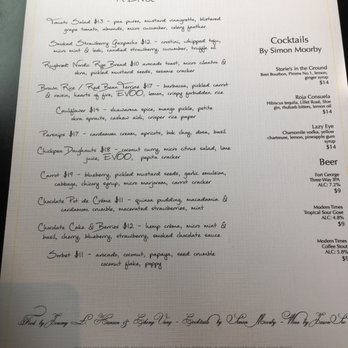 Tomato Salad $13 - pea puree, mustard vinaigrette, blistered
grape tomato, almonds, micro cucumber, celery feather
Smoked Strawberry Gazpacho $12 - crostini, whipped tofu,
micro mint & leek, candied strawberry, cucumber, truffle oil
Rugbrøt Nordic Rye Bread $10 avocado toast, micro cilantro &
dora, pickled mustard seeds, sesame cracker
Brown Rice / Red Bean Terrine $17 - barbecue, pickled carrot
& raisin, hearts of fire, EVOO, lemon, crispy forbidden rice
Cauliflower $16 - shawarma spice, mango pickle, petite
dora sprouts, cashew aioli, crisper rice paper
Parsnips $17 - cardamom cream, apricots, bok choy, dosa, basil
Chickpea Doughnuts $18 - coconut curry, micro citrus salad, lime
juice, EVOO, papita cracker
Carrot $19 - blueberry, pickled mustard seeds, garlic emulsion,
cabbage, chicory syrup, micro marjoram, carrot cracker
Chocolate Pot de Crème $11 - quinoa pudding, macadamia &
cardamom crumble, macerated strawberries, mint
Chocolate Cake & Berries $12 - hemp crème, micro mint &
basil, cherry, blueberry, strawberry, smoked chocolate sauce
Sorbet $11 - avocado, coconut, papaya, seed crumble
coconut flake, poppy
Cocktails
By Simon Moorby
Storie's in the Ground
Beet Bourbon, Pimms No.1, lemon,
ginger syrup
$14
Roja Consuela
Hibiscus tequila, Lillet Rosé, Sloe
gin, rhubarb bitters, lemon oil
$14
Lazy Eye
Chamomile vodka, yellow
chartreuse, lemon, pineapple gum
syrup
$14
Beer
Fort George
Three Way IPA
ALC: 7.2%
$9
Modern Times
Tropical Sour Gose
ALC: 4.8%
$9
Modern Times
Coffee Stout
ALC: 5.8%
$9
Food by &
- Cocktails by Simon Moorby - Wine by